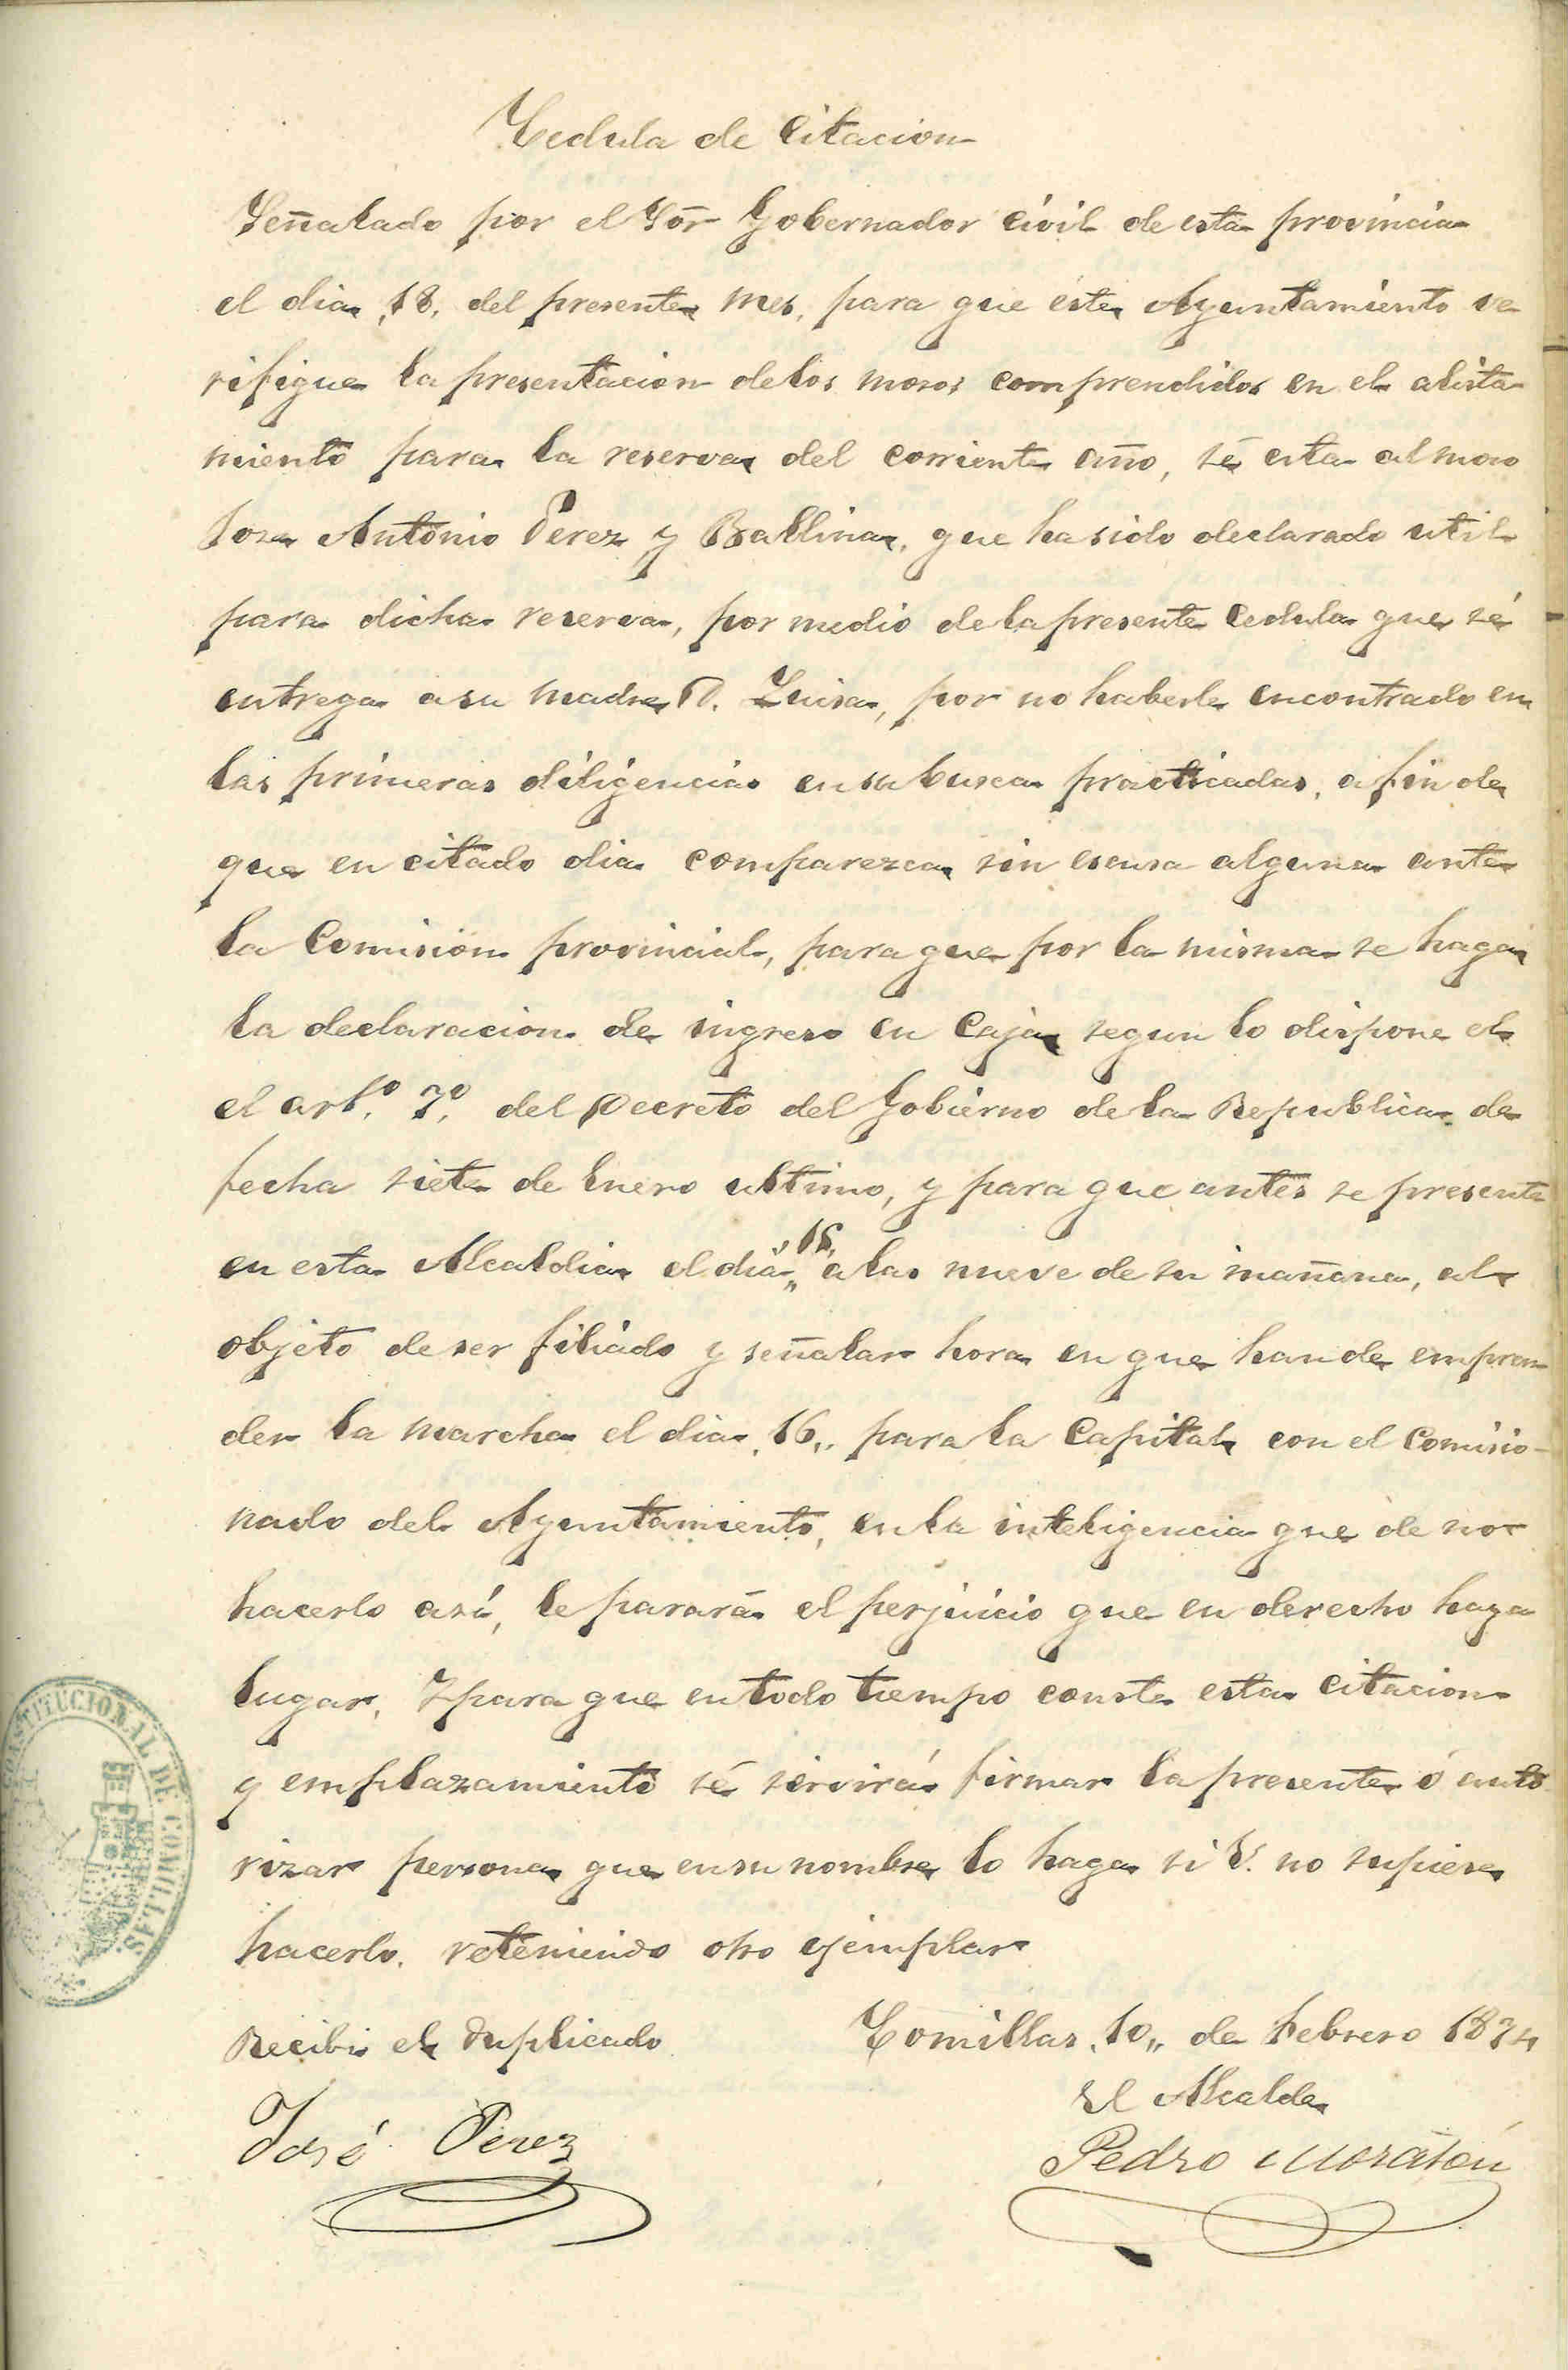 Cedula de Citacion
Señalado por el Sor Gobernador civil de esta provincia
el dia 18, del presente mes, para que este Ayuntamiento ve-
rifique la presentacion de los mozos comprendidos en el alista-
miento para la reserva del corriente año, sé cita al mozo
José Antonio Perez y Ballina, que ha sido declarado util
para dicha reserva, por medio de la presente cedula que sé
entrega a su madre D. Luisa, por no haberle encontrado en
las primeras diligencias en su busca practicadas, a fin de
que en citado dia comparezca sin escusa alguna ante
la Comision provincial, para que por la misma se haga
la declaracion de ingreso en Caja segun lo dispone el
el artº. 7º. del Decreto del Gobierno de la Republica de
fecha siete de Enero ultimo, y para que antes se presente
en esta Alcaldia el dia 15, a las nueve de su mañana, al
objeto de ser filiado y señalar hora en que han de empren-
der la marcha el dia 16,, para la Capital con el Comisio-
nado del Ayuntamiento, en la inteligencia que de no
hacerlo asi, le parará el perjuicio que en derecho haya
lugar. Y para que en todo tiempo conste esta citacion
y emplazamiento sé servirá firmar la presente ó auto
rizar persona que en su nombre lo haga si V. no supiese
hacerlo. reteniendo otro ejemplar
Recibi el duplicado
Comillas, 10,, de Febrero 1874
El Alcalde
José Perez
Pedro Moratón
CONSTITUCIONAL DE COMILLAS